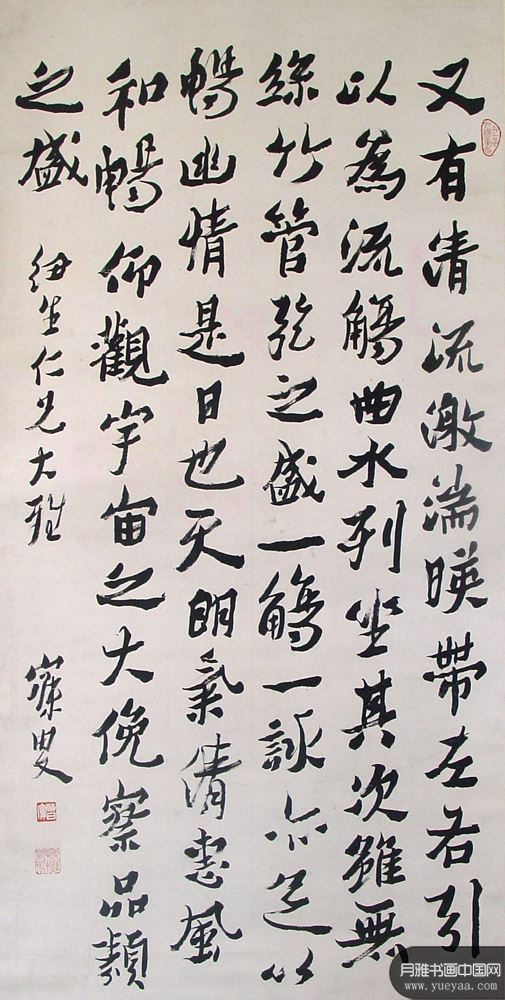 又有清流激湍暎帶左右引
以為流觴曲水列坐其次雖無
絲竹管弦之盛一觴一詠亦足以
暢幽情是日也天朗氣清惠風
和暢仰觀宇宙之大俛察品類
之盛
生仁兄大雅
寐叟
月雅书画中国网
www.yueyaa.com